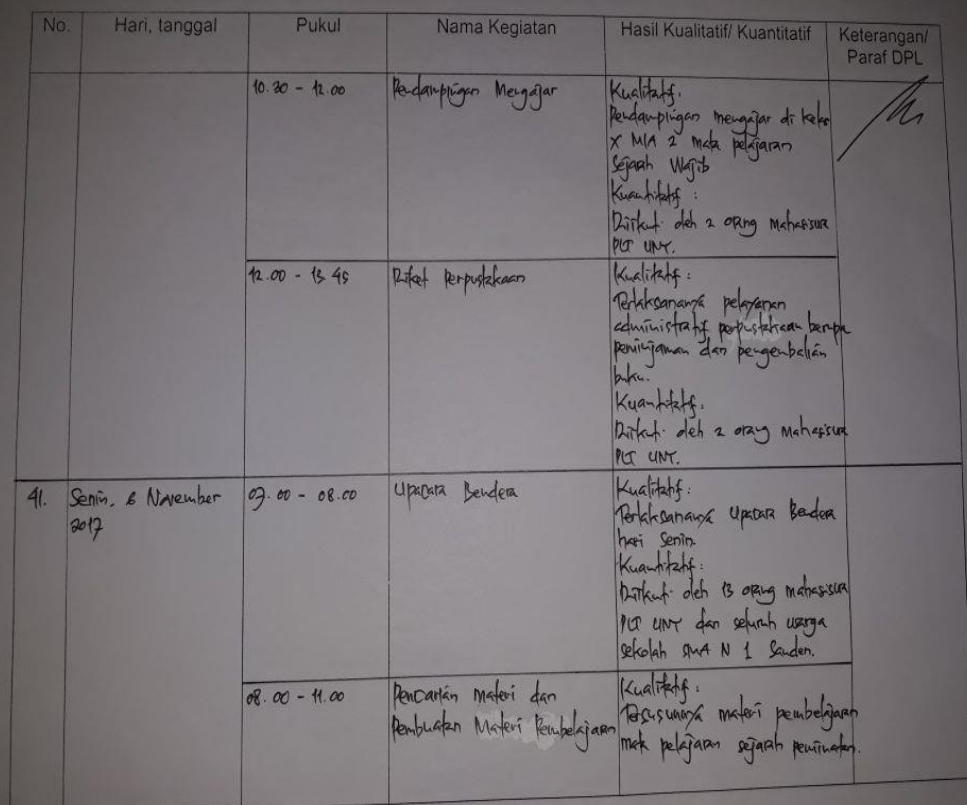 No. Hari, tanggal Pukul Nama Kegiatan Hasil Kualitatif/ Kuantitatif Keterangan/
Paraf DPL
10.30 - 12.00 Pendampingan Mengajar Kualitatif:
Pendampingan mengajar di kelas
X MIA 2 mata pelajaran
Sejarah Wajib
Kuantitatif :
Diikuti oleh 2 orang Mahasiswa
PLT UNY.
12.00 - 13.45 Piket Perpustakaan Kualitatif :
Terlaksananya pelayanan
administratif perpustakaan berupa
peminjaman dan pengembalian
buku.
Kuantitatif:
Diikuti oleh 2 orang Mahasiswa
PLT UNY.
41. Senin, 6 November 07.00 - 08.00 Upacara Bendera Kualitatif :
2017 Terlaksananya Upacara Bendera
hari Senin.
Kuantitatif:
Diikuti oleh 13 orang mahasiswa
PLT UNY dan seluruh warga
sekolah SMA N 1 Sanden.
08.00 - 11.00 Pencarian Materi dan Kualitatif :
Pembuatan Materi Pembelajaran Tersusunnya materi pembelajaran
mata pelajaran sejarah peminatan.